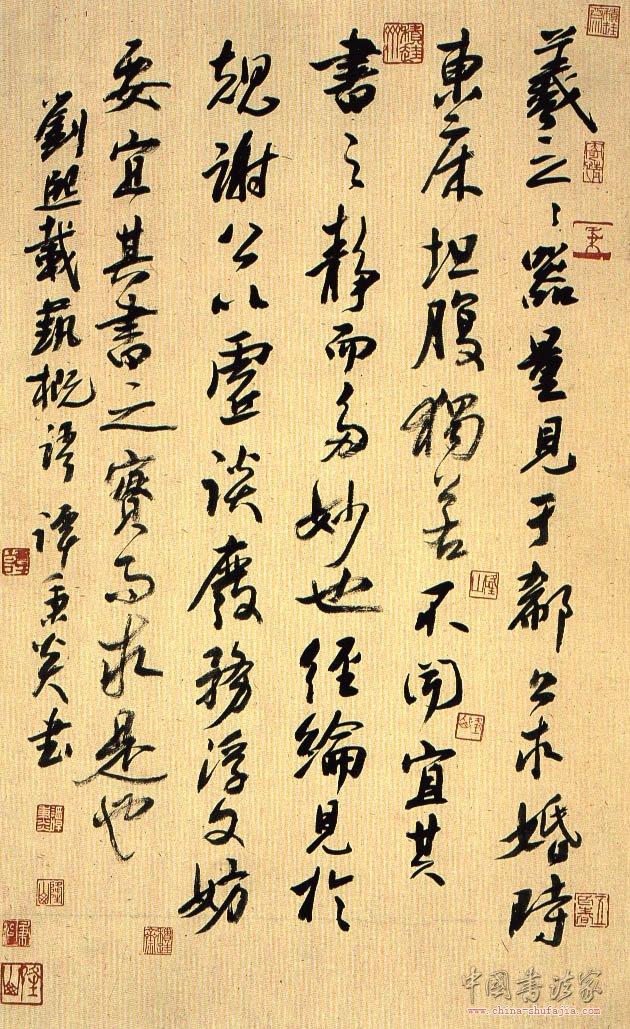 羲之之器量見于郗公求婚時
東床坦腹獨若不聞宜其
書之静而多妙也經綸見於
規謝公以虛談廢務浮文妨
要宜其書之實而求是也
劉熙載藝概語譚秉炎書
中國書法家
www.china-shufajia.com